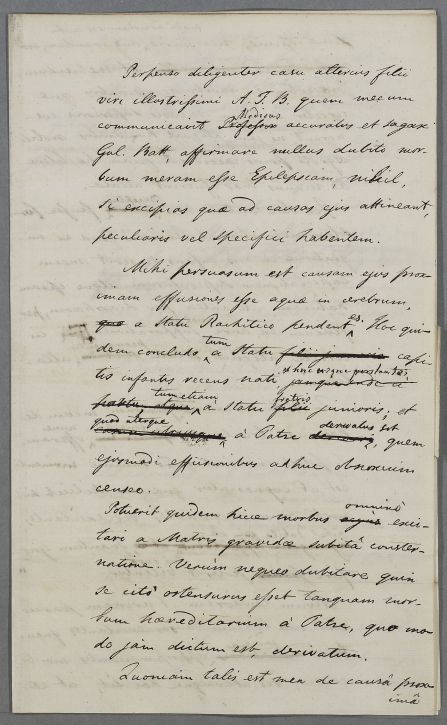 Perpenso diligenter casu alterius filii
viri illustrissimi A. J. B. quem mecum
Medicus
communicavit Professor accuratus et sagax
Gul. Batt, affirmare nullus dubito mor-
bum meram esse Epilepsiam, nihil,
si excipias quæ ad causas ejus attineant,
peculiaris vel specifici habentem.
Mihi persuasum est causam ejus prox-
imam effusiones esse aquæ in cerebrum,
quæ a statu Rachitico pendent es. Hoc qui-
dem concludo tum a statu capi-
tis infantis recens nati, adhuc usque
tum etiam a statu fratris junioris, et
quod uterque derivatus est
a Patre, quem
ejusmodi effusionibus adhuc obnoxium
censeo.
omnino
Potuerit quidem hicce morbus exci-
tari a Matris gravidæ subitâ conster-
natione. Verum nequeo dubitare, quin
se citò ostensurus esset tanquam mor-
bum hæreditarium à Patre, quo mo-
do jam dictum est, derivatum.
Quoniam talis est mea de causâ prox-
imâ